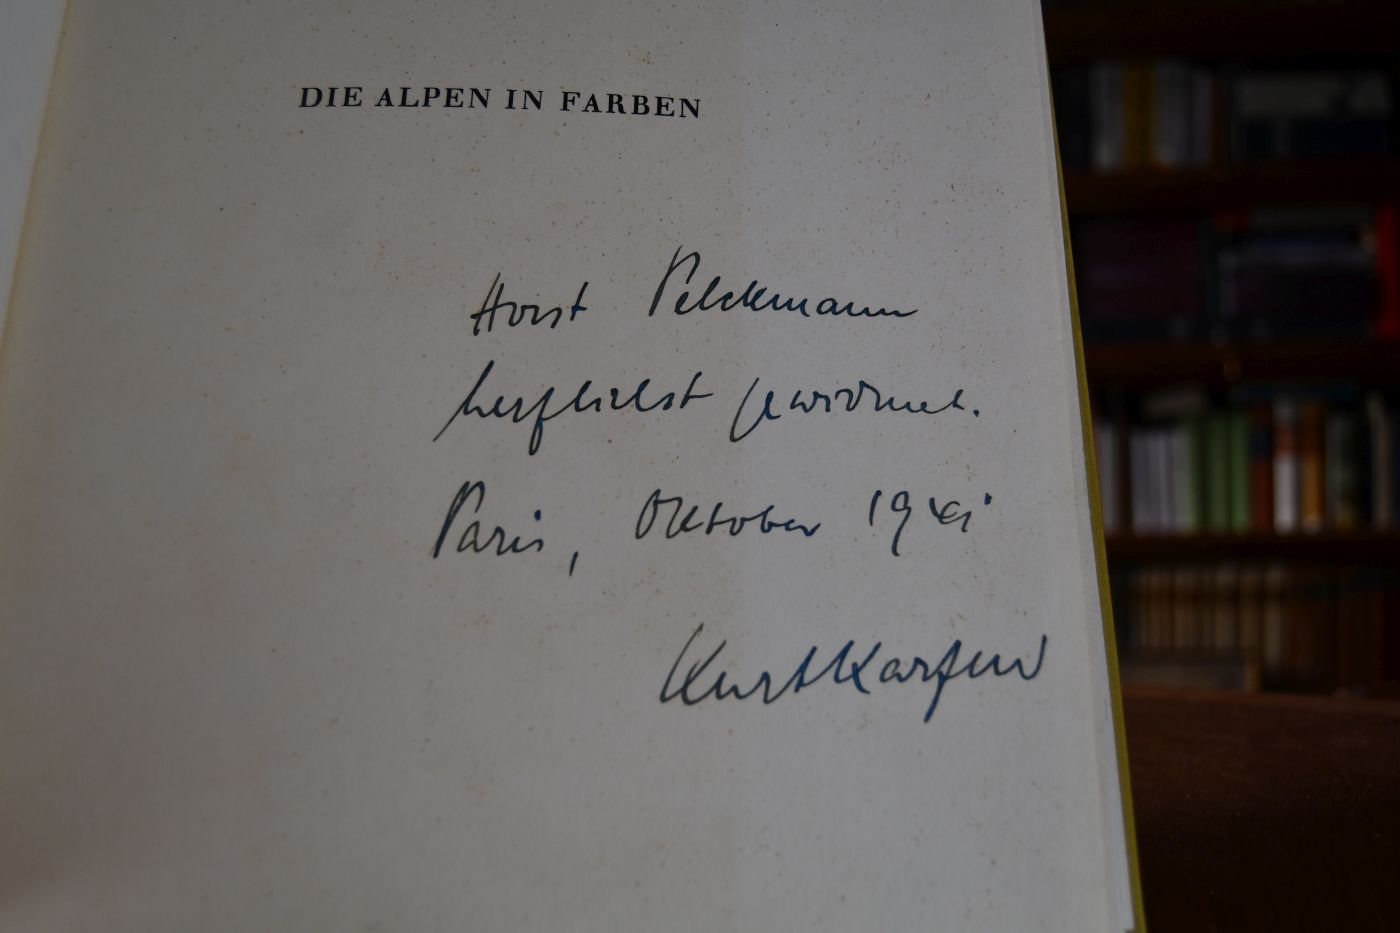 DIE ALPEN IN FARBEN
Horst Pelckmann
herzlichst gewidmet.
Paris, Oktober 1941
Kurt Karfeld